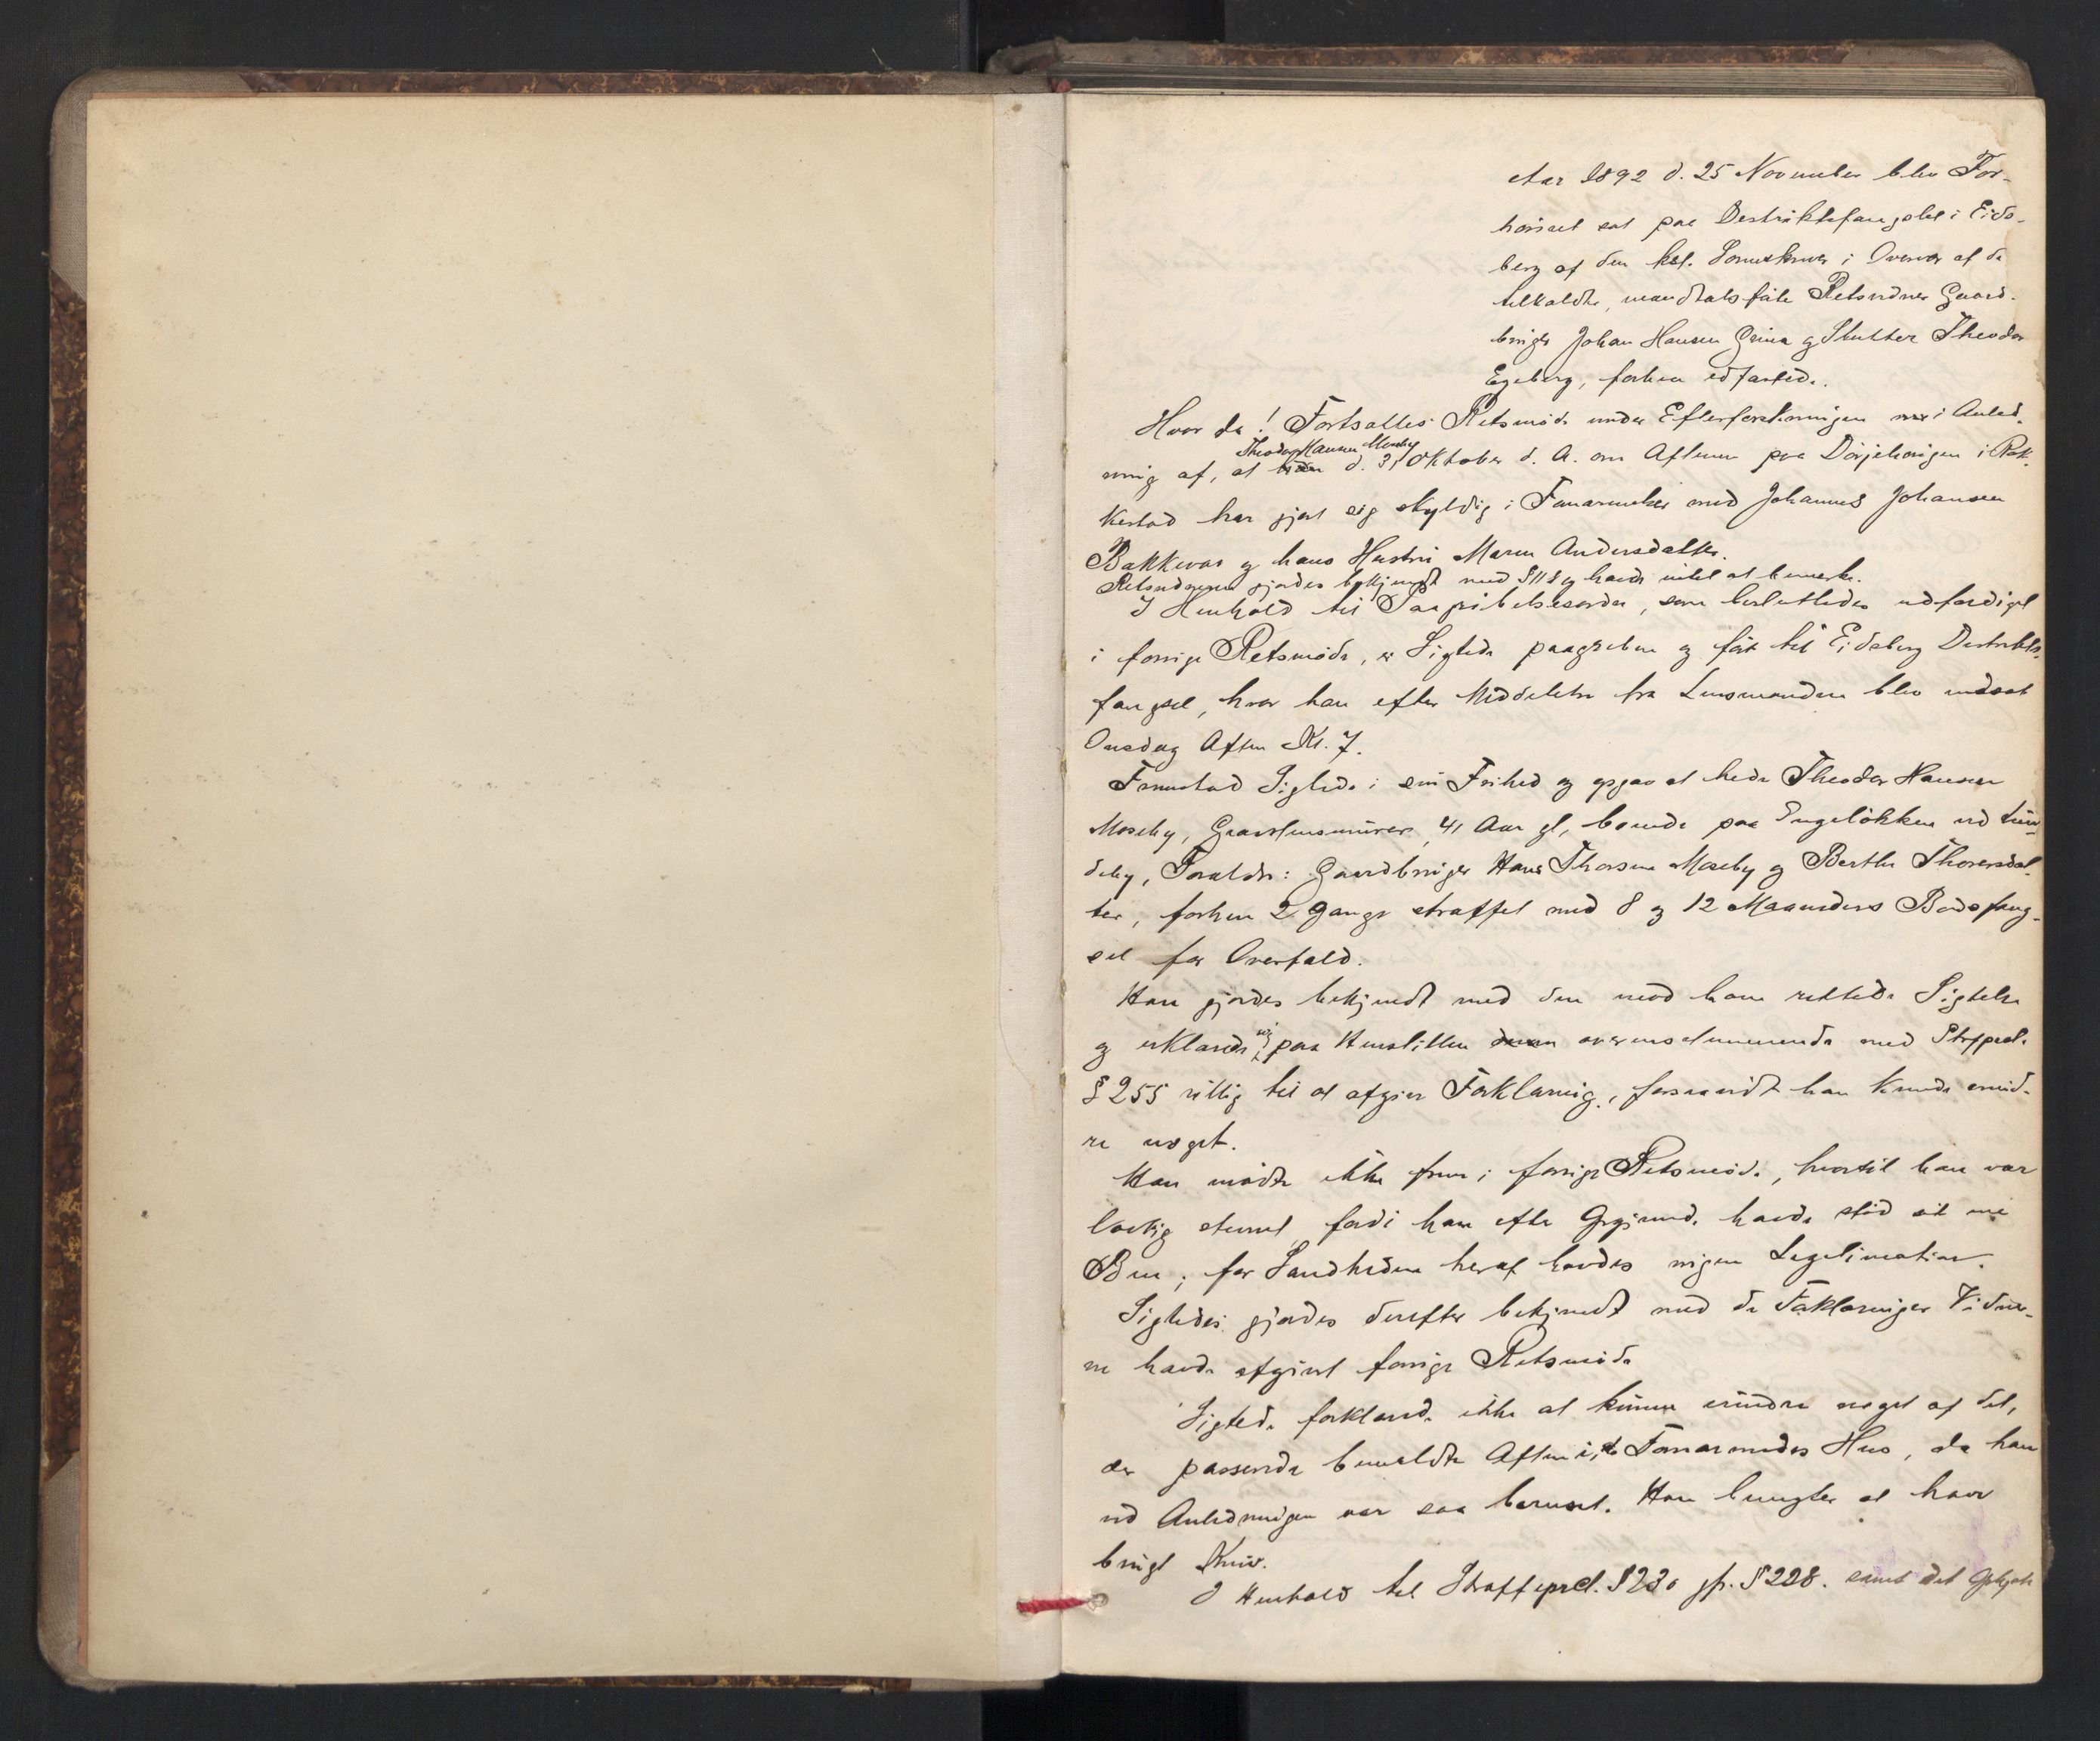 Aar 1892 d. 25 November blev For-
höiret sat paa Destriktsfængslet i Eids-
berg af den kst. Sorenskriver i Overvær af de
tilkaldte, mandtalsförte Retsvidner Gaard-
bruger Johan Hansen Grina og Slutter Theodor
Egeberg, forhen edfæstede.
Hvor da! Fortsattes Retsmöde under Efterforskningen i Anled-
Theodor Hansen Moseby
ning af, at d. 31 Oktober d. A. om Aftenen paa Dörjehaugen i Rak-
kestad har gjort sig skyldig i Fornærmelser mod Johannes Johansen
Bakkevar og hans Hustru Maren Andersdatter.
Retsvidnerne gjordes bekjendt med § 118 og havde intet at bemerke.
I Henhold til Paagribelsesordre, som besluttedes udfærdiget
i forrige Retsmöde, er Sigtede paagreben og fört til Eidsberg Destrikts-
fængsel, hvor han efter Meddelelse fra Lensmanden blev indsat
Onsdag Aften Kl. 7.
Fremstod Sigtede i sin Frihed og opgav at hede Theodor Hansen
Moseby, Graastensmurer, 41 Aar gl, boende paa Engelökken ved
deby, Foreldre: Gaardbruger Hans Thorsen Moseby og Berthe Thoresdat-
ter, forhen 2 Gange straffet med 8 og 12 Maaneders Bodsfæng-
sel for Overfald.
Han gjordes bekjendt med den mod ham rettede Sigtelse
og erklærede sig paa Henstillen overensstemmende med Strfprcl.
§ 255 villig til at afgive Forklaring, forsaavidt han kunde erind-
re noget.
Han mödte ikke frem i forrige Retsmöde, hvortil han var
lovlig stevnet, fordi han efter Opgivende havde stöd sit ene
Ben; for Sandheden heraf havdes ingen Legetimation.
Sigtede gjordes derefter bekjendt med de Forklaringer Vidner-
ne havde afgivet forrige Retsmöde
Sigtede forklarede ikke at kunne erindre noget af det,
der passerede bemeldte Aften i de Fornærmedes Hus, da han
ved Anledningen var saa beruset. Han benegter at have
brugt Kniv.
I Henhold til Straffeprcl. § 230 jfr. § 228. samt det Oplyste